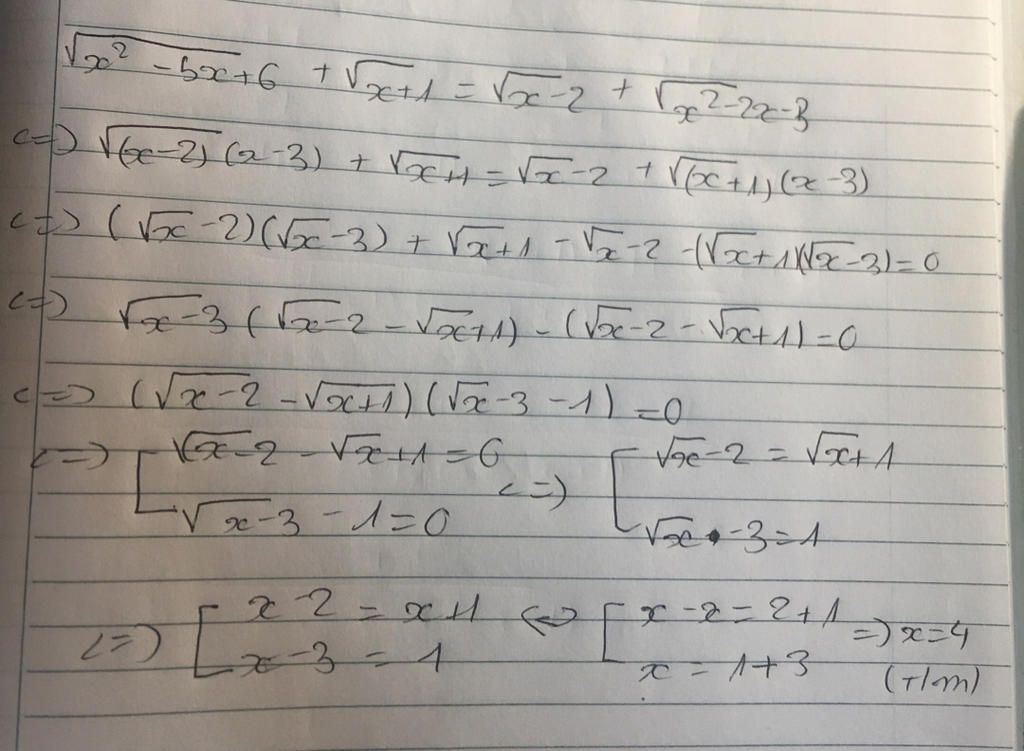 √x² - 5x + 6 + √x+1 = √x-2 + √x²-2x-3
<=> √(x-2)(x-3) + √x+1 = √x-2 + √(x+1)(x-3)
<=> (√x-2)(√x-3) + √x+1 - √x-2 - (√x+1)(√x-3) = 0
<=> √x-3 (√x-2 - √x+1) - (√x-2 - √x+1) = 0
<=> (√x-2 - √x+1)(√x-3 - 1) = 0
<=> [ √x-2 - √x+1 = 0 <=> [ √x-2 = √x+1
√x-3 - 1 = 0 √x-3 = 1
<=> [ x-2 = x+1 <=> [ x-x = 2+1 => x=4
x-3 = 1 x = 1+3 (T/m)